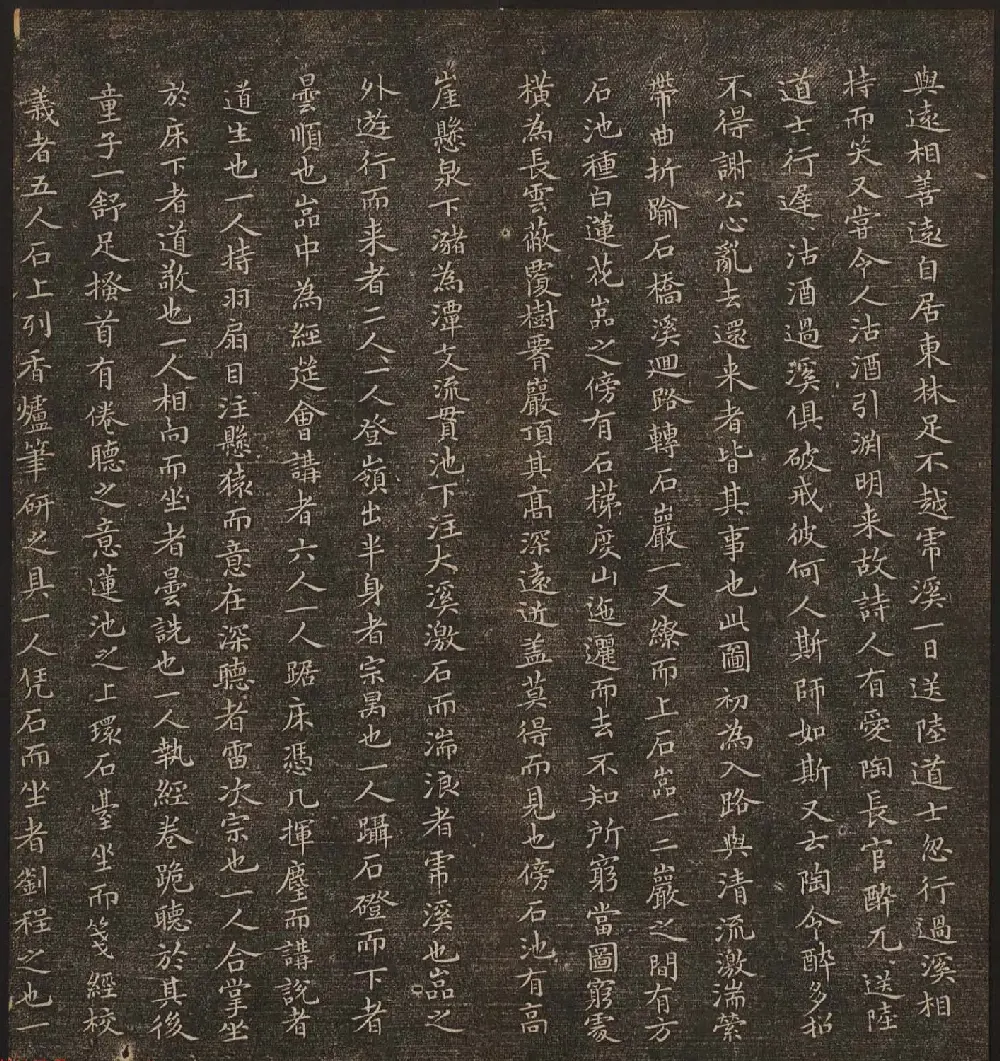 與遠相善遠自居東林足不越虎溪一日送陸道士忽行過溪相
持而笑又嘗令人沽酒引淵明来故詩人有愛陶長官醉兀兀送陸
道士行遲遲沽酒過溪俱破戒彼何人斯師如斯又云陶令醉多招
不得謝公心亂去還来者皆其事也此圖初為入路與清流激湍縈
帶曲折踰石橋溪迴路轉石巖一又繚而上石嵓一二巖之間有方
石池種白蓮花嵓之傍有石梯度山迤邐而去不知所窮當圖窮處
橫為長雲蔽覆樹霄巖頂其髙深遠近盖莫得而見也傍石池有高
崖懸泉下瀦為潭支流貫池下注大溪激石而湍浪者虎溪也嵓之
外遊行而来者二人一人登嶺出半身者宗昺也一人躡石磴而下者
曇順也嵓中為經筵會講者六人一人踞床憑几揮麈而講說者
道生也一人持羽扇目注懸猿而意在深聽者雷次宗也一人合掌坐
於床下者道敬也一人相向而坐者曇詵也一人執經卷跪聽於其後
童子一舒足搔首有倦聽之意蓮池之上環石臺坐而箋經校
義者五人石上列香爐筆研之具一人凭石而坐者劉程之也一